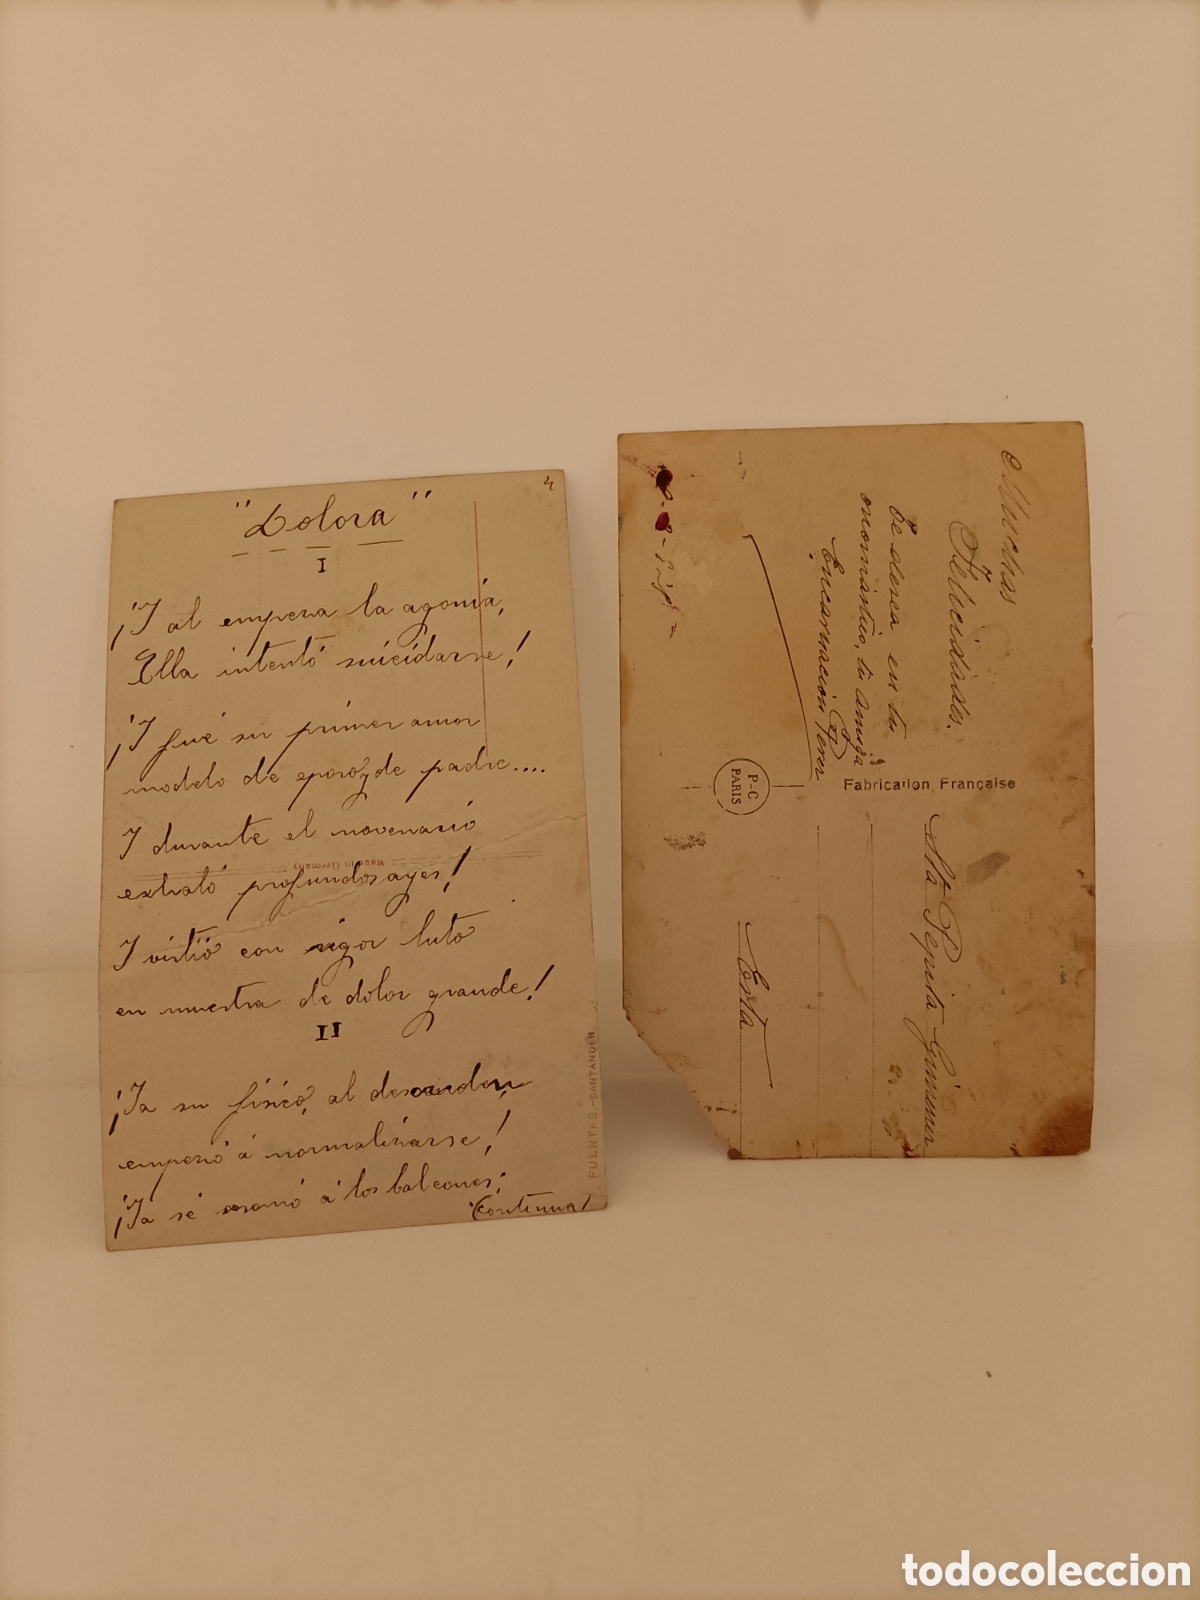 4
"Dolora"
I
¡Y al empezar la agonía,
Ella intentó suicidarse!
¡Y fué su primer amor
modelo de esposo y de padre....
Y durante el novenario
exhaló profundos ayes!
Y vistió con rigor luto
en muestra de dolor grande!
II
¡Ya su físico, al desorden,
empezó á normalizarse!
¡Ya se asomó á los balcones;
(Continua)
Made in Germany
FUENTES.-SANTANDER
Muchas
Felicidades.
Te desea en tu
onomástico, tu amiga
Encarnación Perez
Fabrication Française
P-C
PARIS
Sta Pepita Gimenez
Esta
todocoleccion